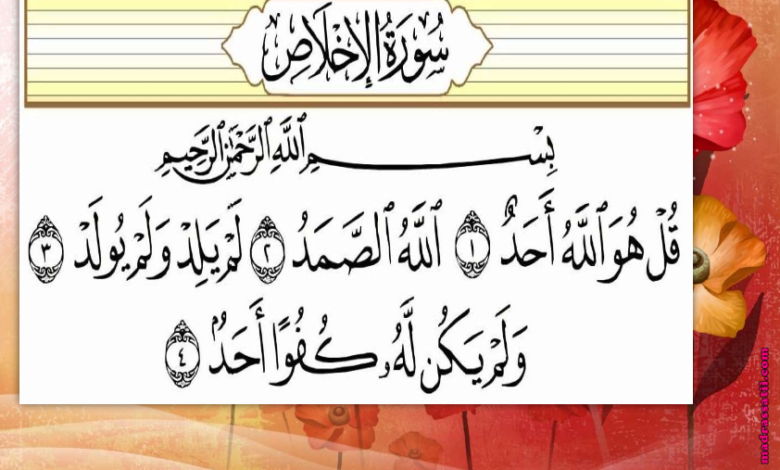 سُورَةُ الإِخْلَاصِ
بِسْمِ ٱللَّهِ ٱلرَّحْمَٰنِ ٱلرَّحِيمِ
قُلْ هُوَ ٱللَّهُ أَحَدٌ ١ ٱللَّهُ ٱلصَّمَدُ ٢ لَمْ يَلِدْ وَلَمْ يُولَدْ ٣
وَلَمْ يَكُن لَّهُۥ كُفُوًا أَحَدٌۢ ٤
madrassatii.com